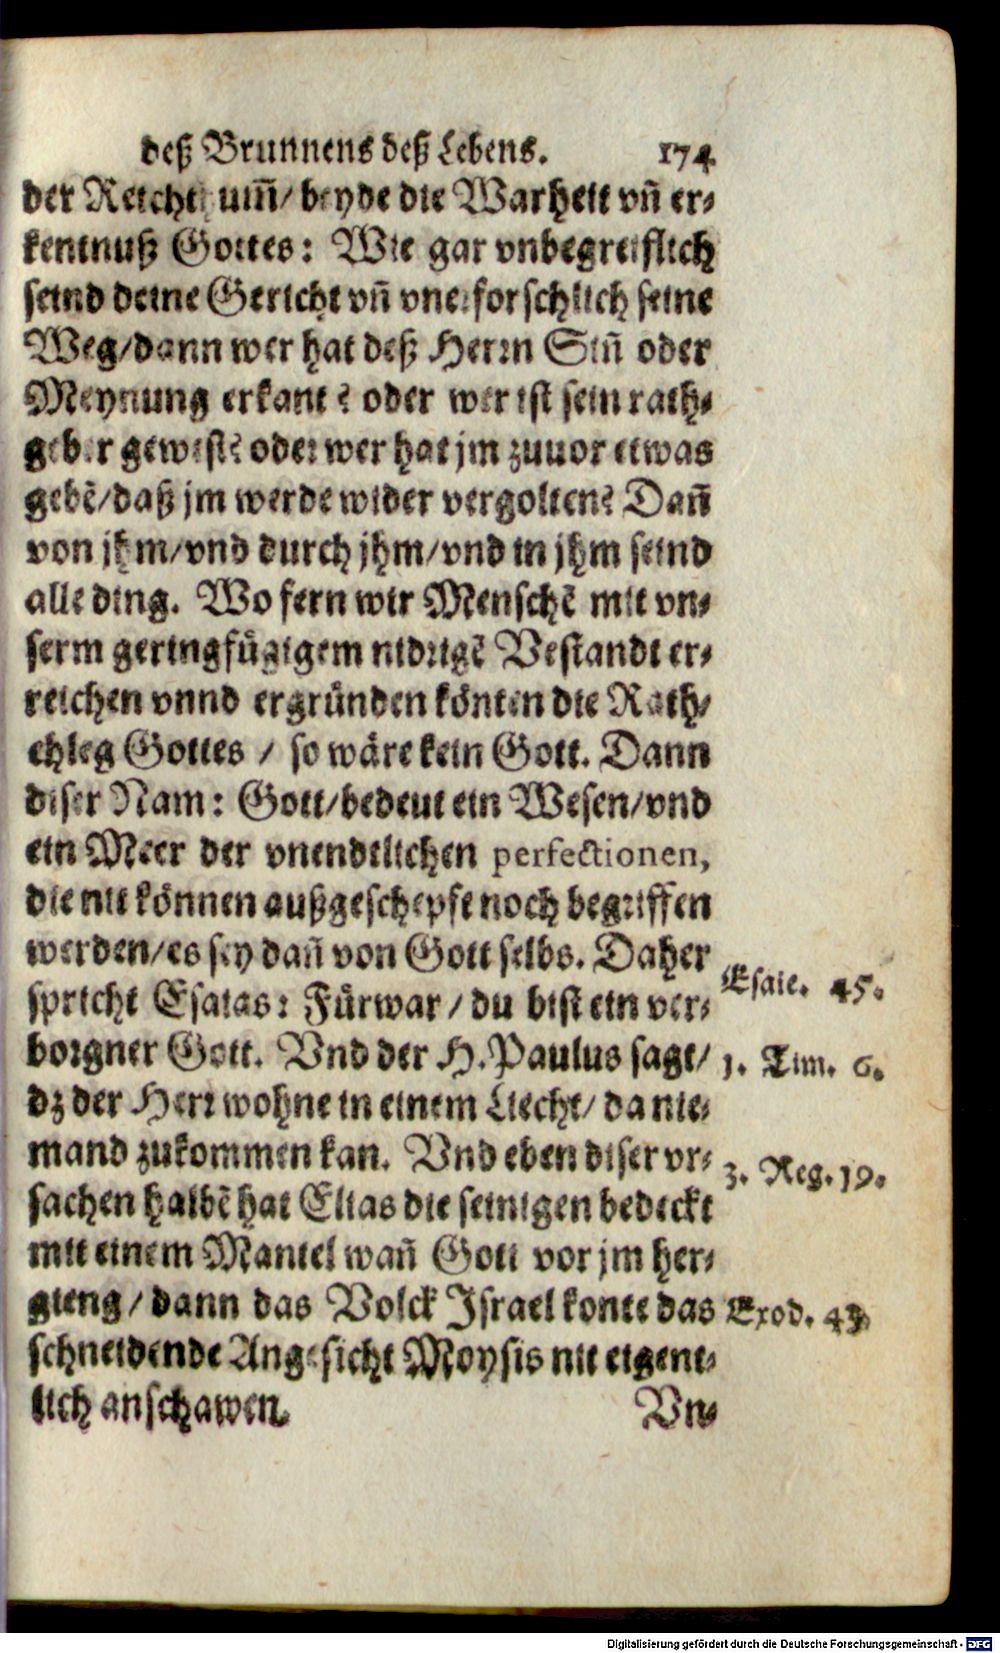 deß Brunnens deß Lebens. 174
der Reichthumm̃/ beyde die Warheit vñ er⸗
kentnuß Gottes: Wie gar vnbegreiflich
seind deine Gericht vñ vnerforschlich seine
Weg/dann wer hat deß Herrn Siñ oder
Meynung erkant? oder wer ist sein rath⸗
geber gewest? oder wer hat jm zuuor etwas
gebẽ/daß jm werde wider vergolten? Dañ
von jhm/vnd durch jhm/vnd in jhm seind
alle ding. Wo fern wir Menschẽ mit vn⸗
serm geringfügigem nidrigẽ Vestandt er⸗
reichen vnnd ergründen könten die Rath⸗
schleg Gottes / so wäre kein Gott. Dann
diser Nam: Gott/bedeut ein Wesen/vnd
ein Meer der vnendtlichen perfectionen,
die nit können außgeschepft noch begriffen
werden/es sey dañ von Gott selbs. Daher
spricht Esaias: Fürwar / du bist ein ver⸗
Esaie. 45.
borgner Gott. Vnd der H. Paulus sagt/
1. Tim. 6.
dz der Herr wohne in einem Liecht/ da nie⸗
mand zukommen kan. Vnd eben diser vr⸗
3. Reg. 19.
sachen halbẽ hat Elias die seinigen bedeckt
mit einem Mantel wañ Gott vor jm her⸗
gieng / dann das Volck Israel konte das
Exod.
schneidende Angesicht Moysis nit eigent⸗
lich anschawen.
Vn⸗
Digitalisierung gefördert durch die Deutsche Forschungsgemeinschaft - DFG